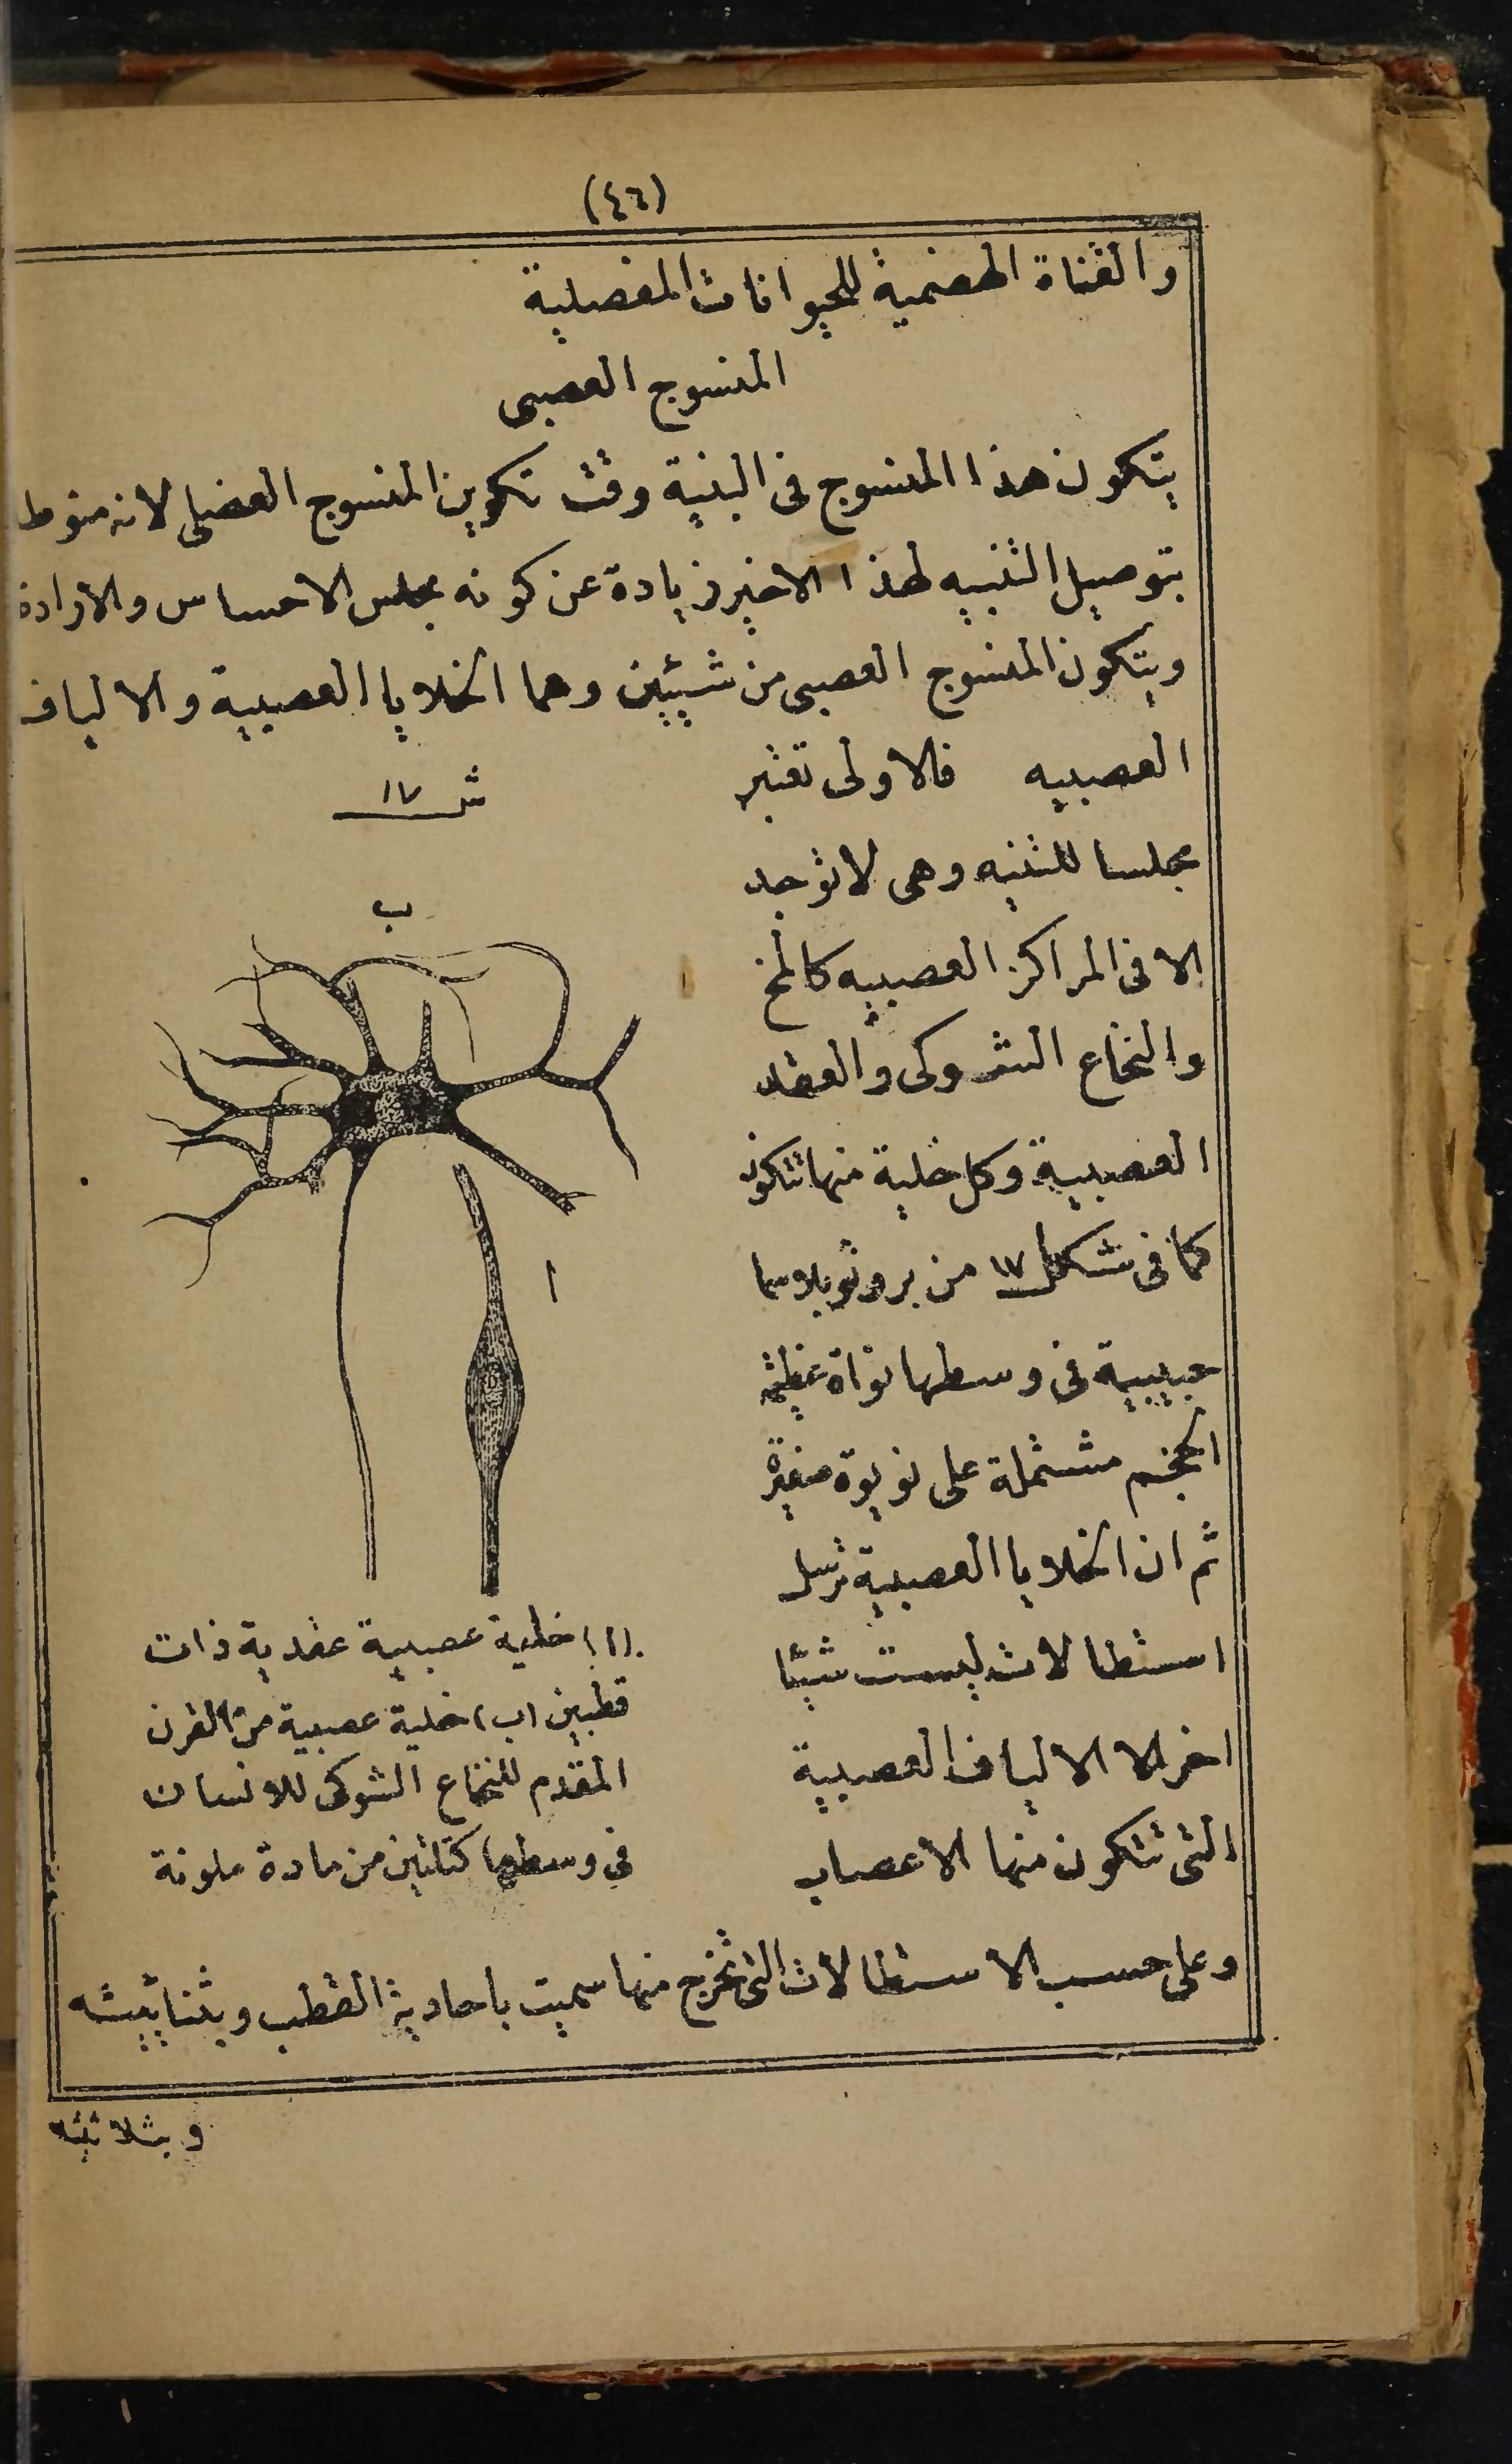 (٤٦)
والقناة الهضمية للحيوانات المفصلية
المنسوج العصبى
يتكون هذا المنسوج فى البنية وقت تكوين المنسوج العضلى لانه منوط
بتوصيل التنبيه لهذا الاخير زيادة عن كونه مجلس الاحساس والارادة
ويتكون المنسوج العصبى من شيئين وهما الخلايا العصبية والالياف
العصبيه فالاولى تعتبر
مجلسا للتنبه وهى لاتوجد
الا فى المراكز العصبيه كالمخ
والنخاع الشوكى والعقد
العصبية وكل خلية منها تتكون
كما فى شكل ١٧ من بروتوبلاسما
حبيبية فى وسطها نواة عظيمة
الحجم مشتملة على نوية صغيرة
ثم ان الخلايا العصبية ترسل
استطالات ليست شيئا
اخر الا الالياف العصبية
التى تتكون منها الاعصاب
ش ١٧
ب
ا
(ا) خلية عصبية عقدية ذات
قطبين (ب) خلية عصبية من القرن
المقدم للنخاع الشوكى للانسان
فى وسطها كتلتين من مادة ملونة
وعلى حسب الاستطالات التى تخرج منها سميت باحادية القطب وبثنائيته
وبثلاثيته